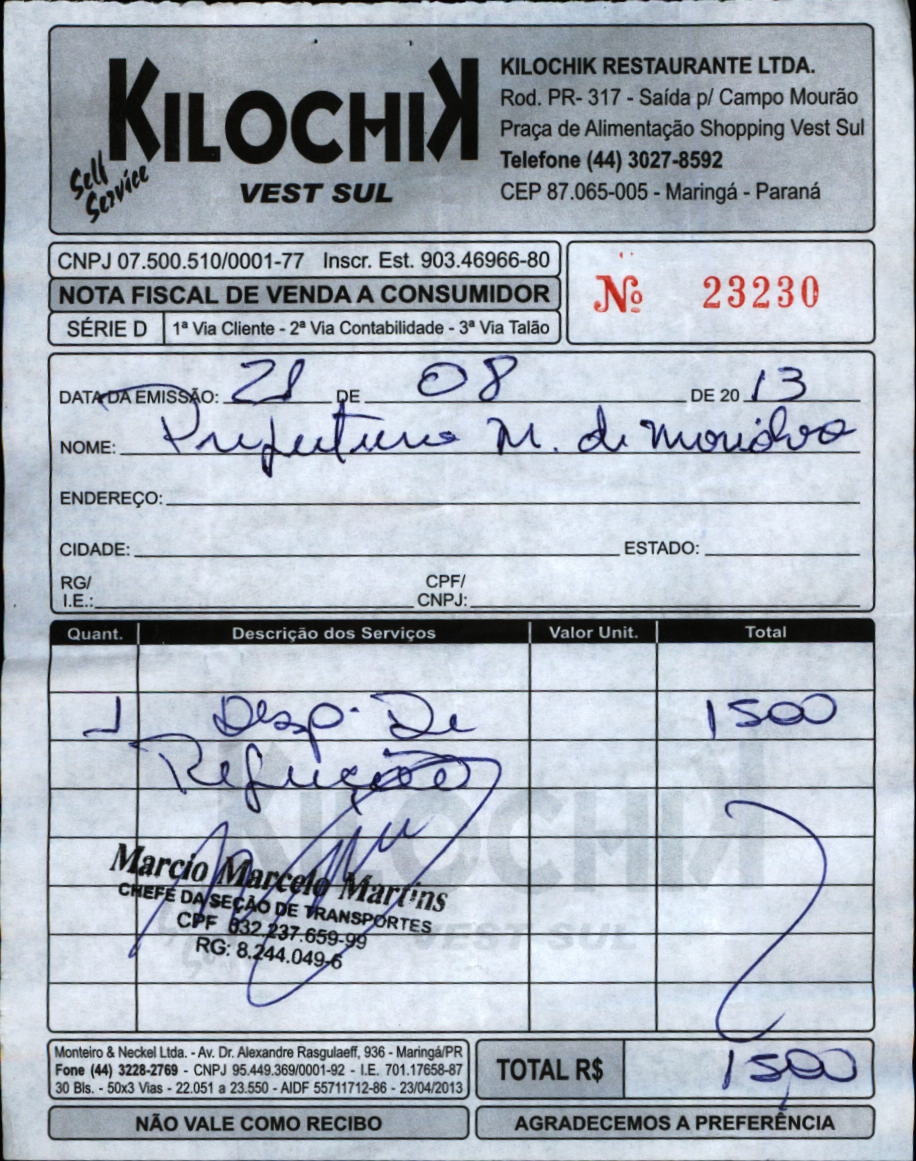 KILOCHIK
Self Service
VEST SUL
KILOCHIK RESTAURANTE LTDA.
Rod. PR- 317 - Saída p/ Campo Mourão
Praça de Alimentação Shopping Vest Sul
Telefone (44) 3027-8592
CEP 87.065-005 - Maringá - Paraná
CNPJ 07.500.510/0001-77 Inscr. Est. 903.46966-80
NOTA FISCAL DE VENDA A CONSUMIDOR
SÉRIE D 1ª Via Cliente - 2ª Via Contabilidade - 3ª Via Talão
Nº 23230
DATA DA EMISSÃO: 21 DE 08 DE 2013
NOME: Prefeitura M. de
ENDEREÇO:
CIDADE: ESTADO:
RG/ I.E.: CPF/ CNPJ:
Quant. Descrição dos Serviços Valor Unit. Total
1 Desp. De 1500
Refeição
KILOCHIK
VEST SUL
Marcio Marcelo Martins
CHEFE DA SEÇÃO DE TRANSPORTES
CPF 032.237.659-99
RG: 8.244.049-6
Monteiro & Neckel Ltda. - Av. Dr. Alexandre Rasgulaeff, 936 - Maringá/PR
Fone (44) 3228-2769 - CNPJ 95.449.369/0001-92 - I.E. 701.17658-87
30 Bls. - 50x3 Vias - 22.051 a 23.550 - AIDF 55711712-86 - 23/04/2013
TOTAL R$ 1500
NÃO VALE COMO RECIBO
AGRADECEMOS A PREFERÊNCIA